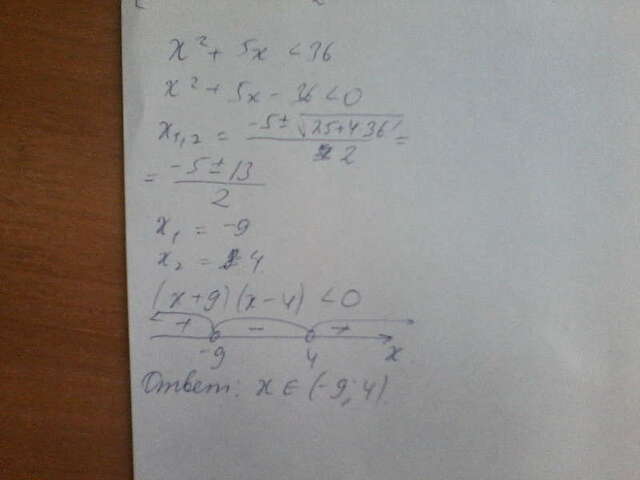 x² + 5x < 36
x² + 5x - 36 < 0
x₁,₂ = (-5 ± √(25+4·36))/2 =
= (-5 ± 13)/2
x₁ = -9
x₂ = 4
(x+9)(x-4) < 0
+ - +
-9 4 x
Ответ: x ∈ (-9; 4)